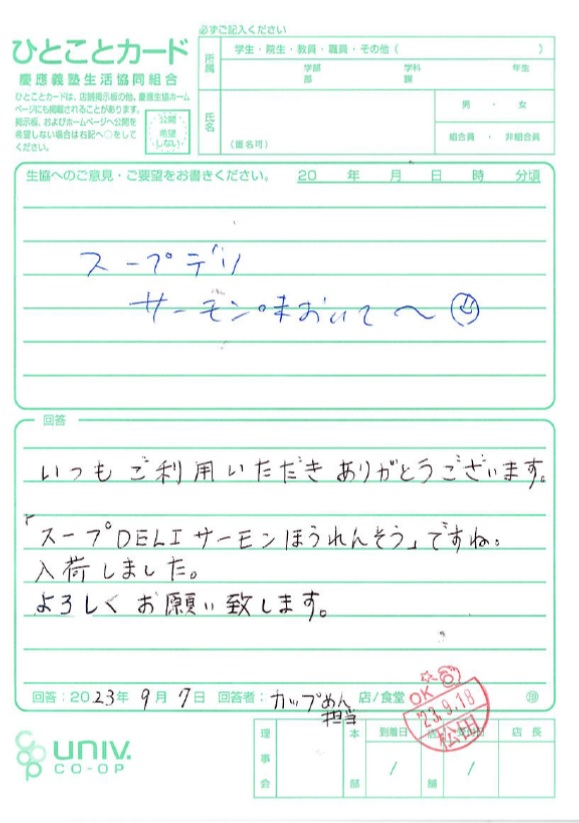 必ずご記入ください
ひとことカード
慶應義塾生活協同組合
ひとことカードは、店舗掲示板の他、慶應生協ホーム
ページにも掲載されることがあります。
掲示板、およびホームページへ公開を
希望しない場合は右記へ○をして
ください。
公開
希望
しない
所属
学生・院生・教員・職員・その他（　　　）
学部　学科　年生
部　課
氏名
（匿名可）
男・女
組合員・非組合員
生協へのご意見・ご要望をお書きください。　20　年　月　日　時　分頃
スープデリ
サーモン味おいて〜
回答
いつもご利用いただきありがとうございます。
「スープDELIサーモンほうれんそう」ですね。
入荷しました。
よろしくお願い致します。
回答：2023年9月7日　回答者：カップめん担当　店/食堂　印
OK
'23.9.18
松田
UNIV.
CO-OP
理事会
本部
到着日
/
店舗
/
店長